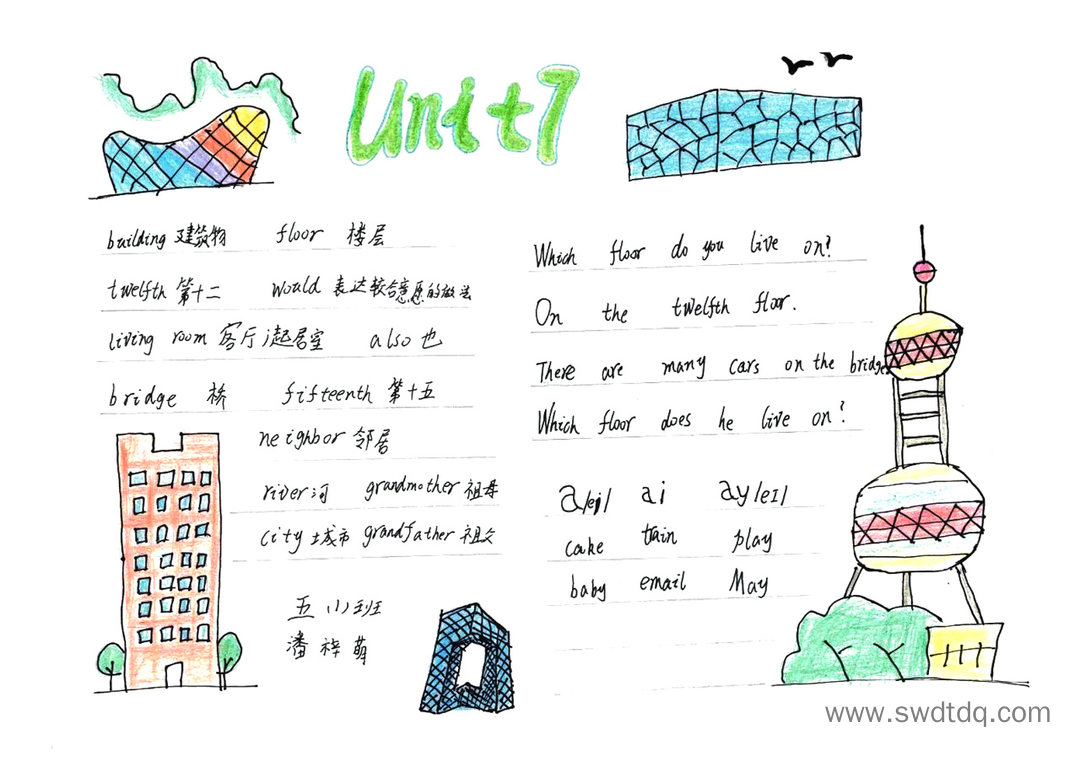 Unit 7
building 建筑物 floor 楼层
twelfth 第十二 would 表达较合意愿的做法
living room 客厅;起居室 also 也
bridge 桥 fifteenth 第十五
neighbor 邻居
river 河 grandmother 祖母
city 城市 grandfather 祖父
五(1)班
潘梓萌
Which floor do you live on?
On the twelfth floor.
There are many cars on the bridge.
Which floor does he live on?
a/eɪ/ ai ay/eɪ/
cake train play
baby email May
www.swdtdq.com